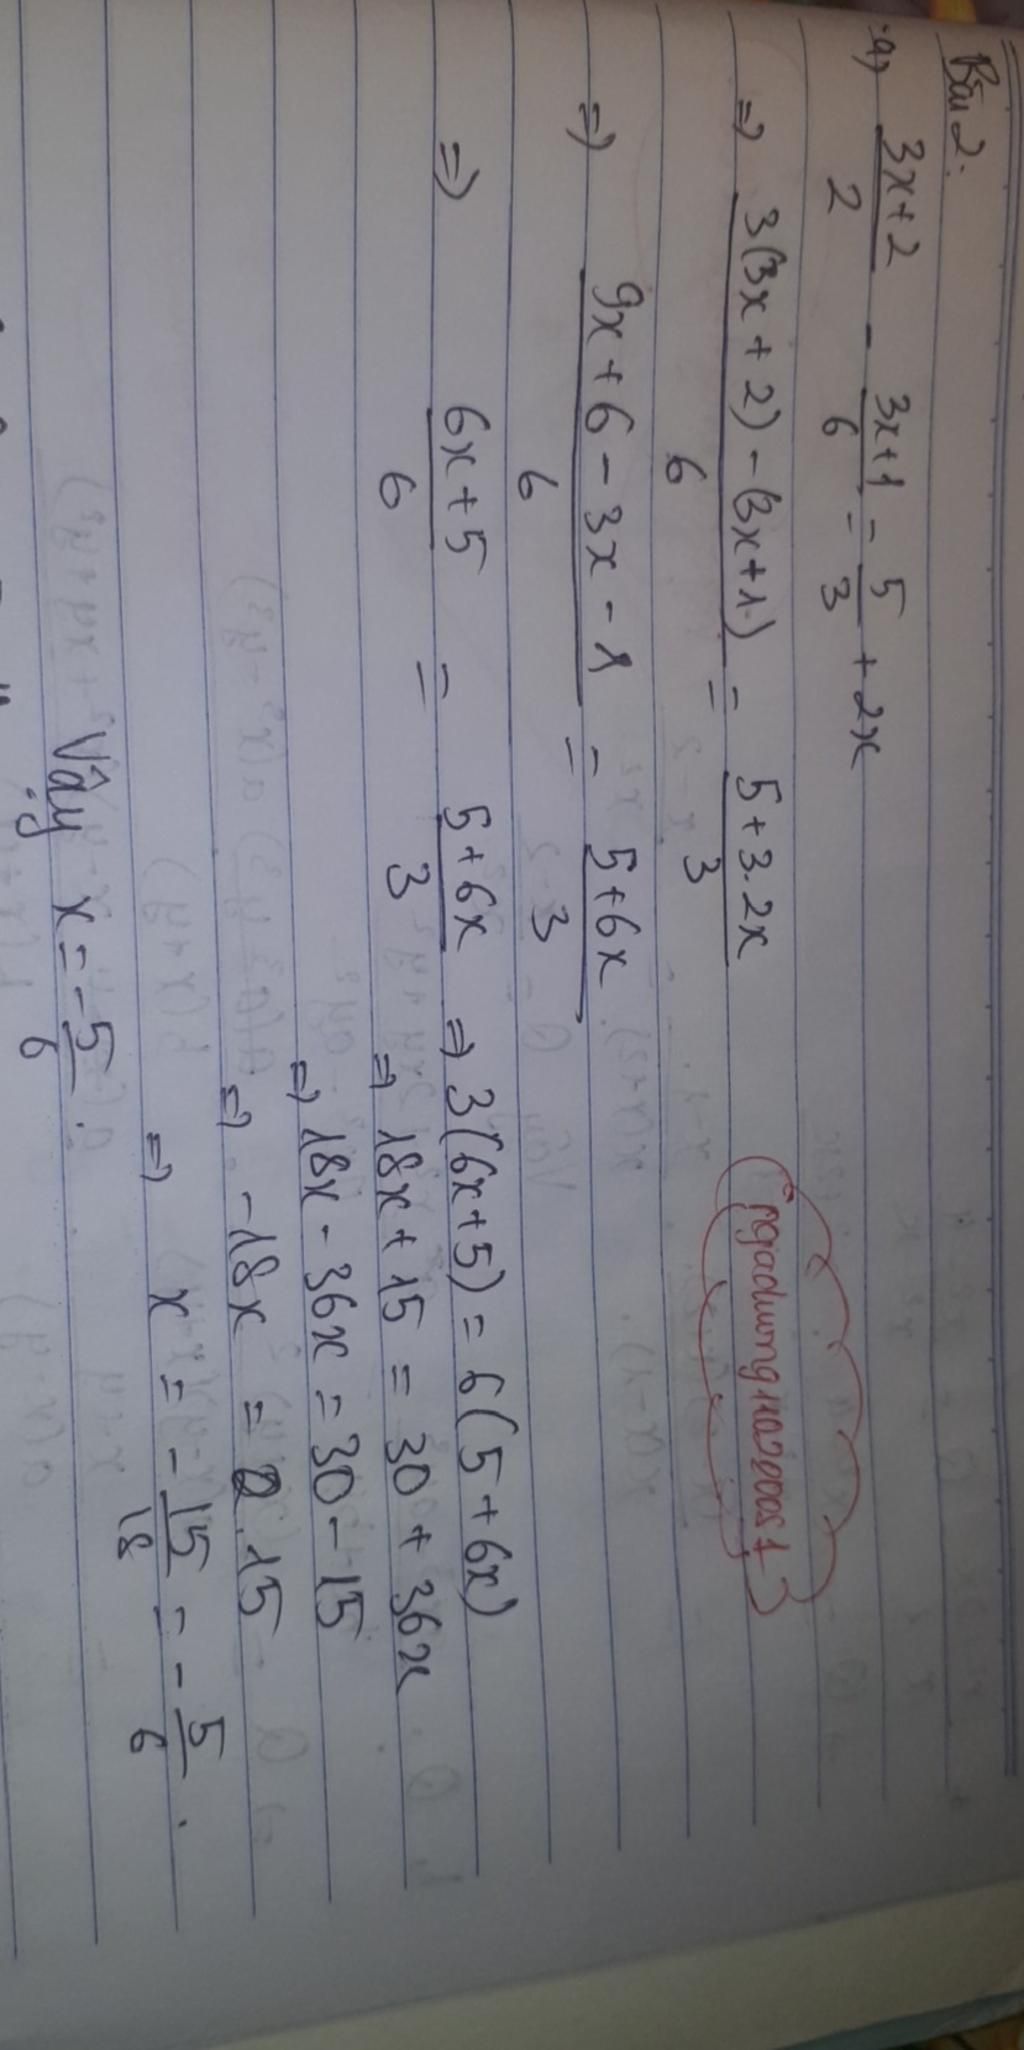 Bài 2:
a) \frac{3x+2}{2} - \frac{3x+1}{6} = \frac{5}{3} + 2x
=> \frac{3(3x+2)-(3x+1)}{6} = \frac{5+3.2x}{3}
ngadung11a2000st1
=> \frac{9x+6-3x-1}{6} = \frac{5+6x}{3}
=> \frac{6x+5}{6} = \frac{5+6x}{3} => 3(6x+5) = 6(5+6x)
=> 18x + 15 = 30 + 36x
=> 18x - 36x = 30 - 15
=> -18x = 15
=> x = -\frac{15}{18} = -\frac{5}{6}.
Vậy x = -\frac{5}{6}.